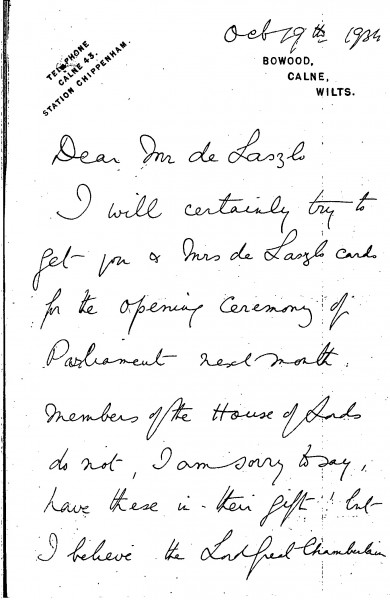 Oct 19th 1934
TELEPHONE
CALNE 43.
STATION CHIPPENHAM.
BOWOOD,
CALNE,
WILTS.
Dear Mr de Laszlo
I will certainly try to
get you & Mrs de Laszlo cards
for the opening ceremony of
Parliament next month.
Members of the House of Lords
do not, I am sorry to say,
have these in their gift! but
I believe the Lord Great Chamberlain